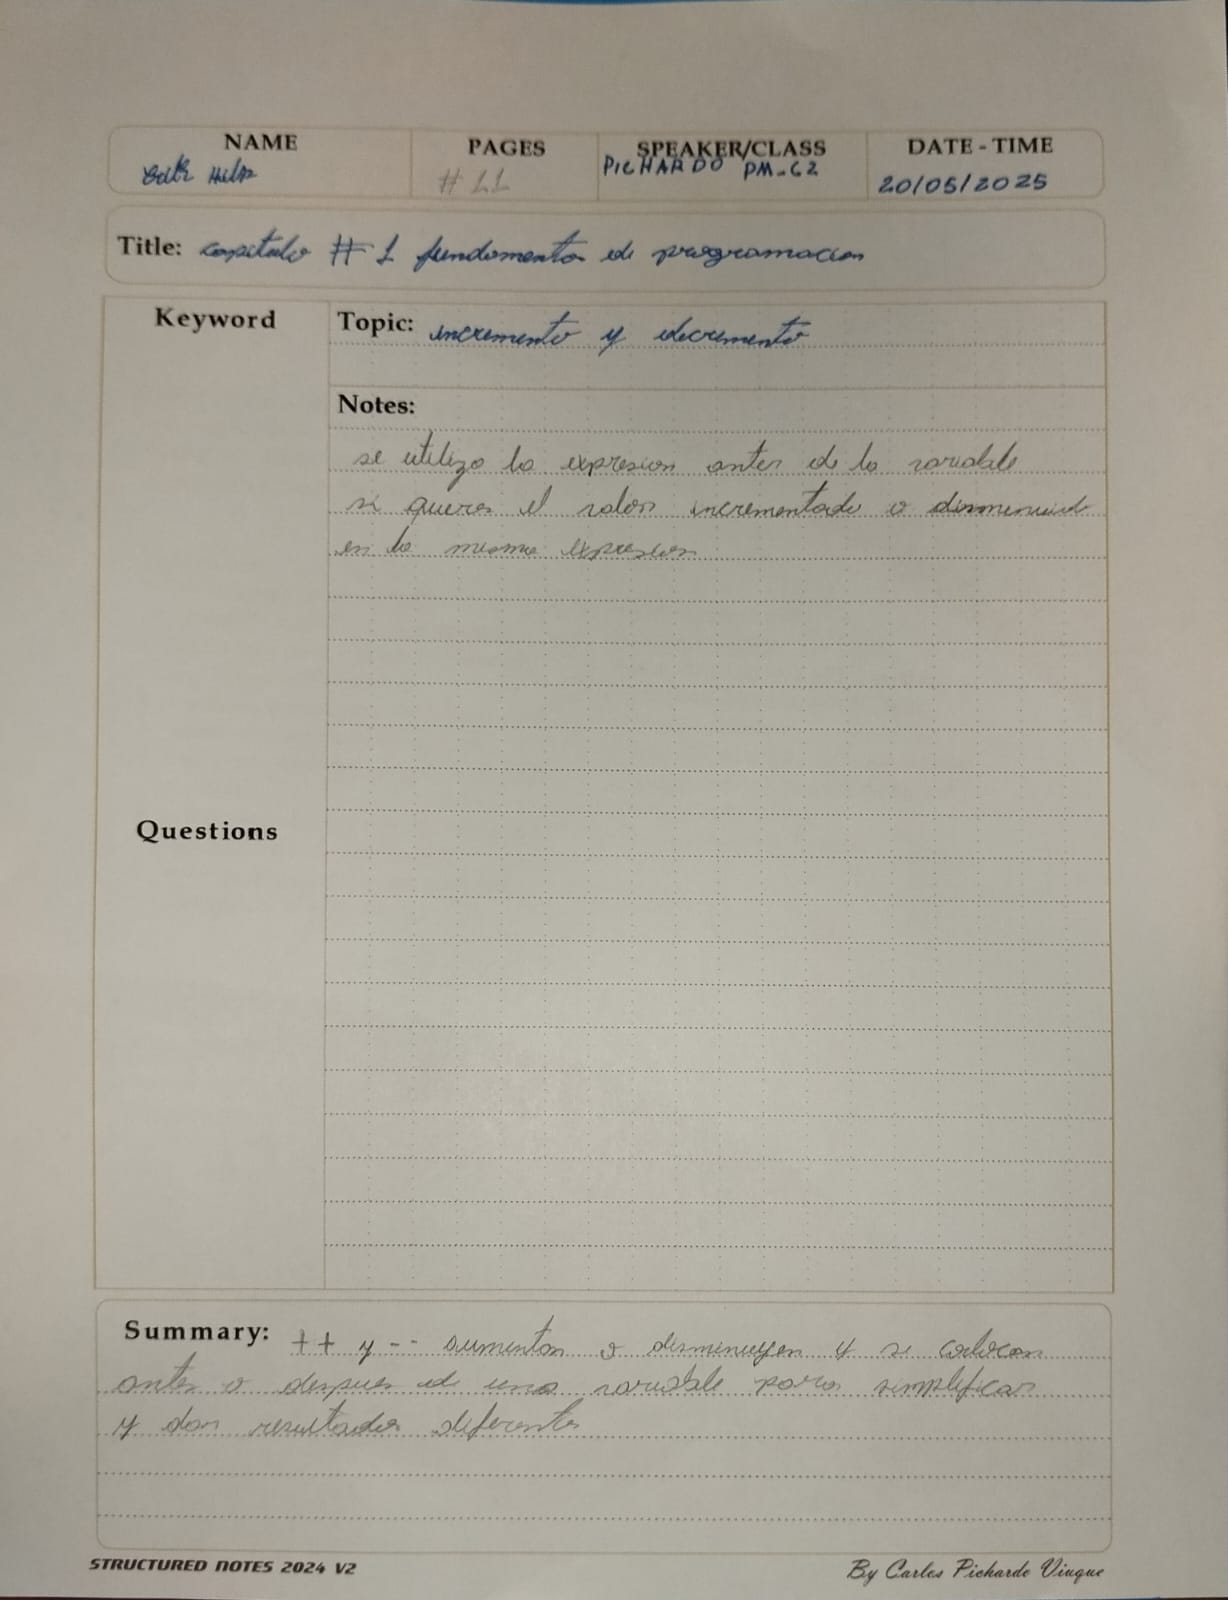 NAME
PAGES
SPEAKER/CLASS
DATE - TIME
# 11
PICHARDO PM-C2
20/05/2025
Title: capitulo # 1 fundamentos de programacion
Keyword
Topic: incremento y decremento
Notes:
se utiliza la expresion antes de la variable
si queres el valor incrementado o
en la misma expresion
Questions
Summary: ++ y -- aumentan o disminuyen y se colocan
antes o despues de una variable para simplificar
y dar resultados diferentes
STRUCTURED NOTES 2024 V2
By Carlos Pichardo Viuque